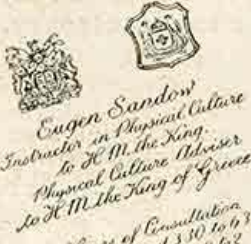 Eugen Sandow
Instructor in Physical Culture
to H.M. the King.
Physical Culture Adviser
to H M the King of Greece
of Consultation
30 to 6